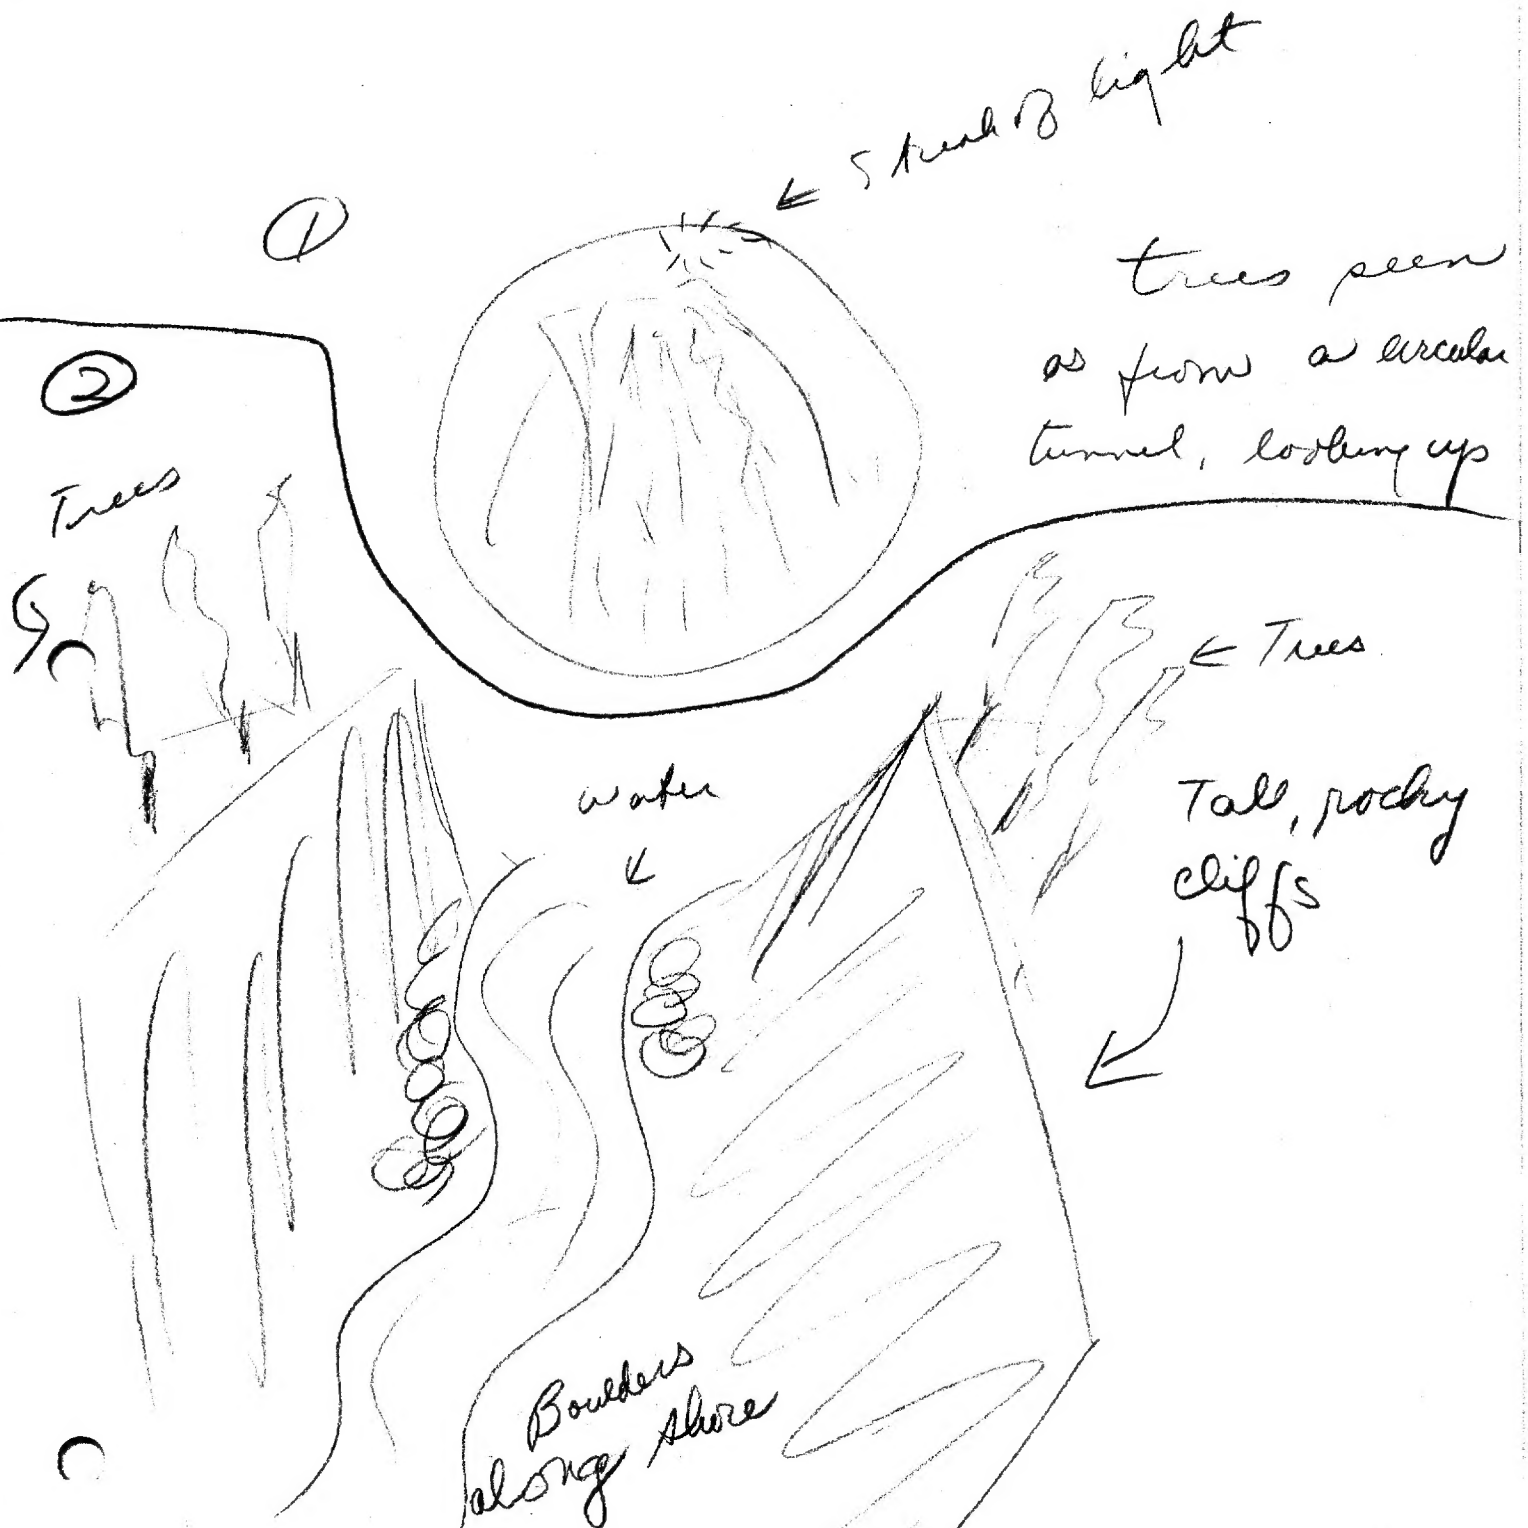 ①
← Streak of light
trees seen
as from a circular
tunnel, looking up
②
Trees
← Trees
water
Tall, rocky
cliffs
Boulders
along shore